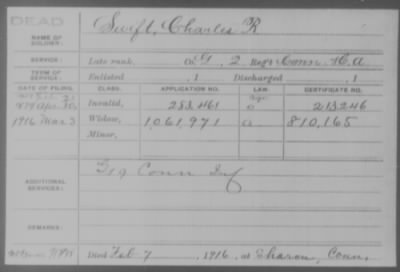 DEAD
NAME OF SOLDIER: Swift, Charles R
SERVICE: Late rank, Co G, 2 Reg't Conn H.A
TERM OF SERVICE: Enlisted , 1 Discharged , 1
DATE OF FILING. CLASS. APPLICATION NO. LAW. CERTIFICATE NO.
Invalid, 283,461 213,246
1916 Mar 3 Widow, 1,061,971 810,165
Minor,
ADDITIONAL SERVICES: Conn Inf
REMARKS:
Died Feb 7, 1916, at Sharon, Conn.